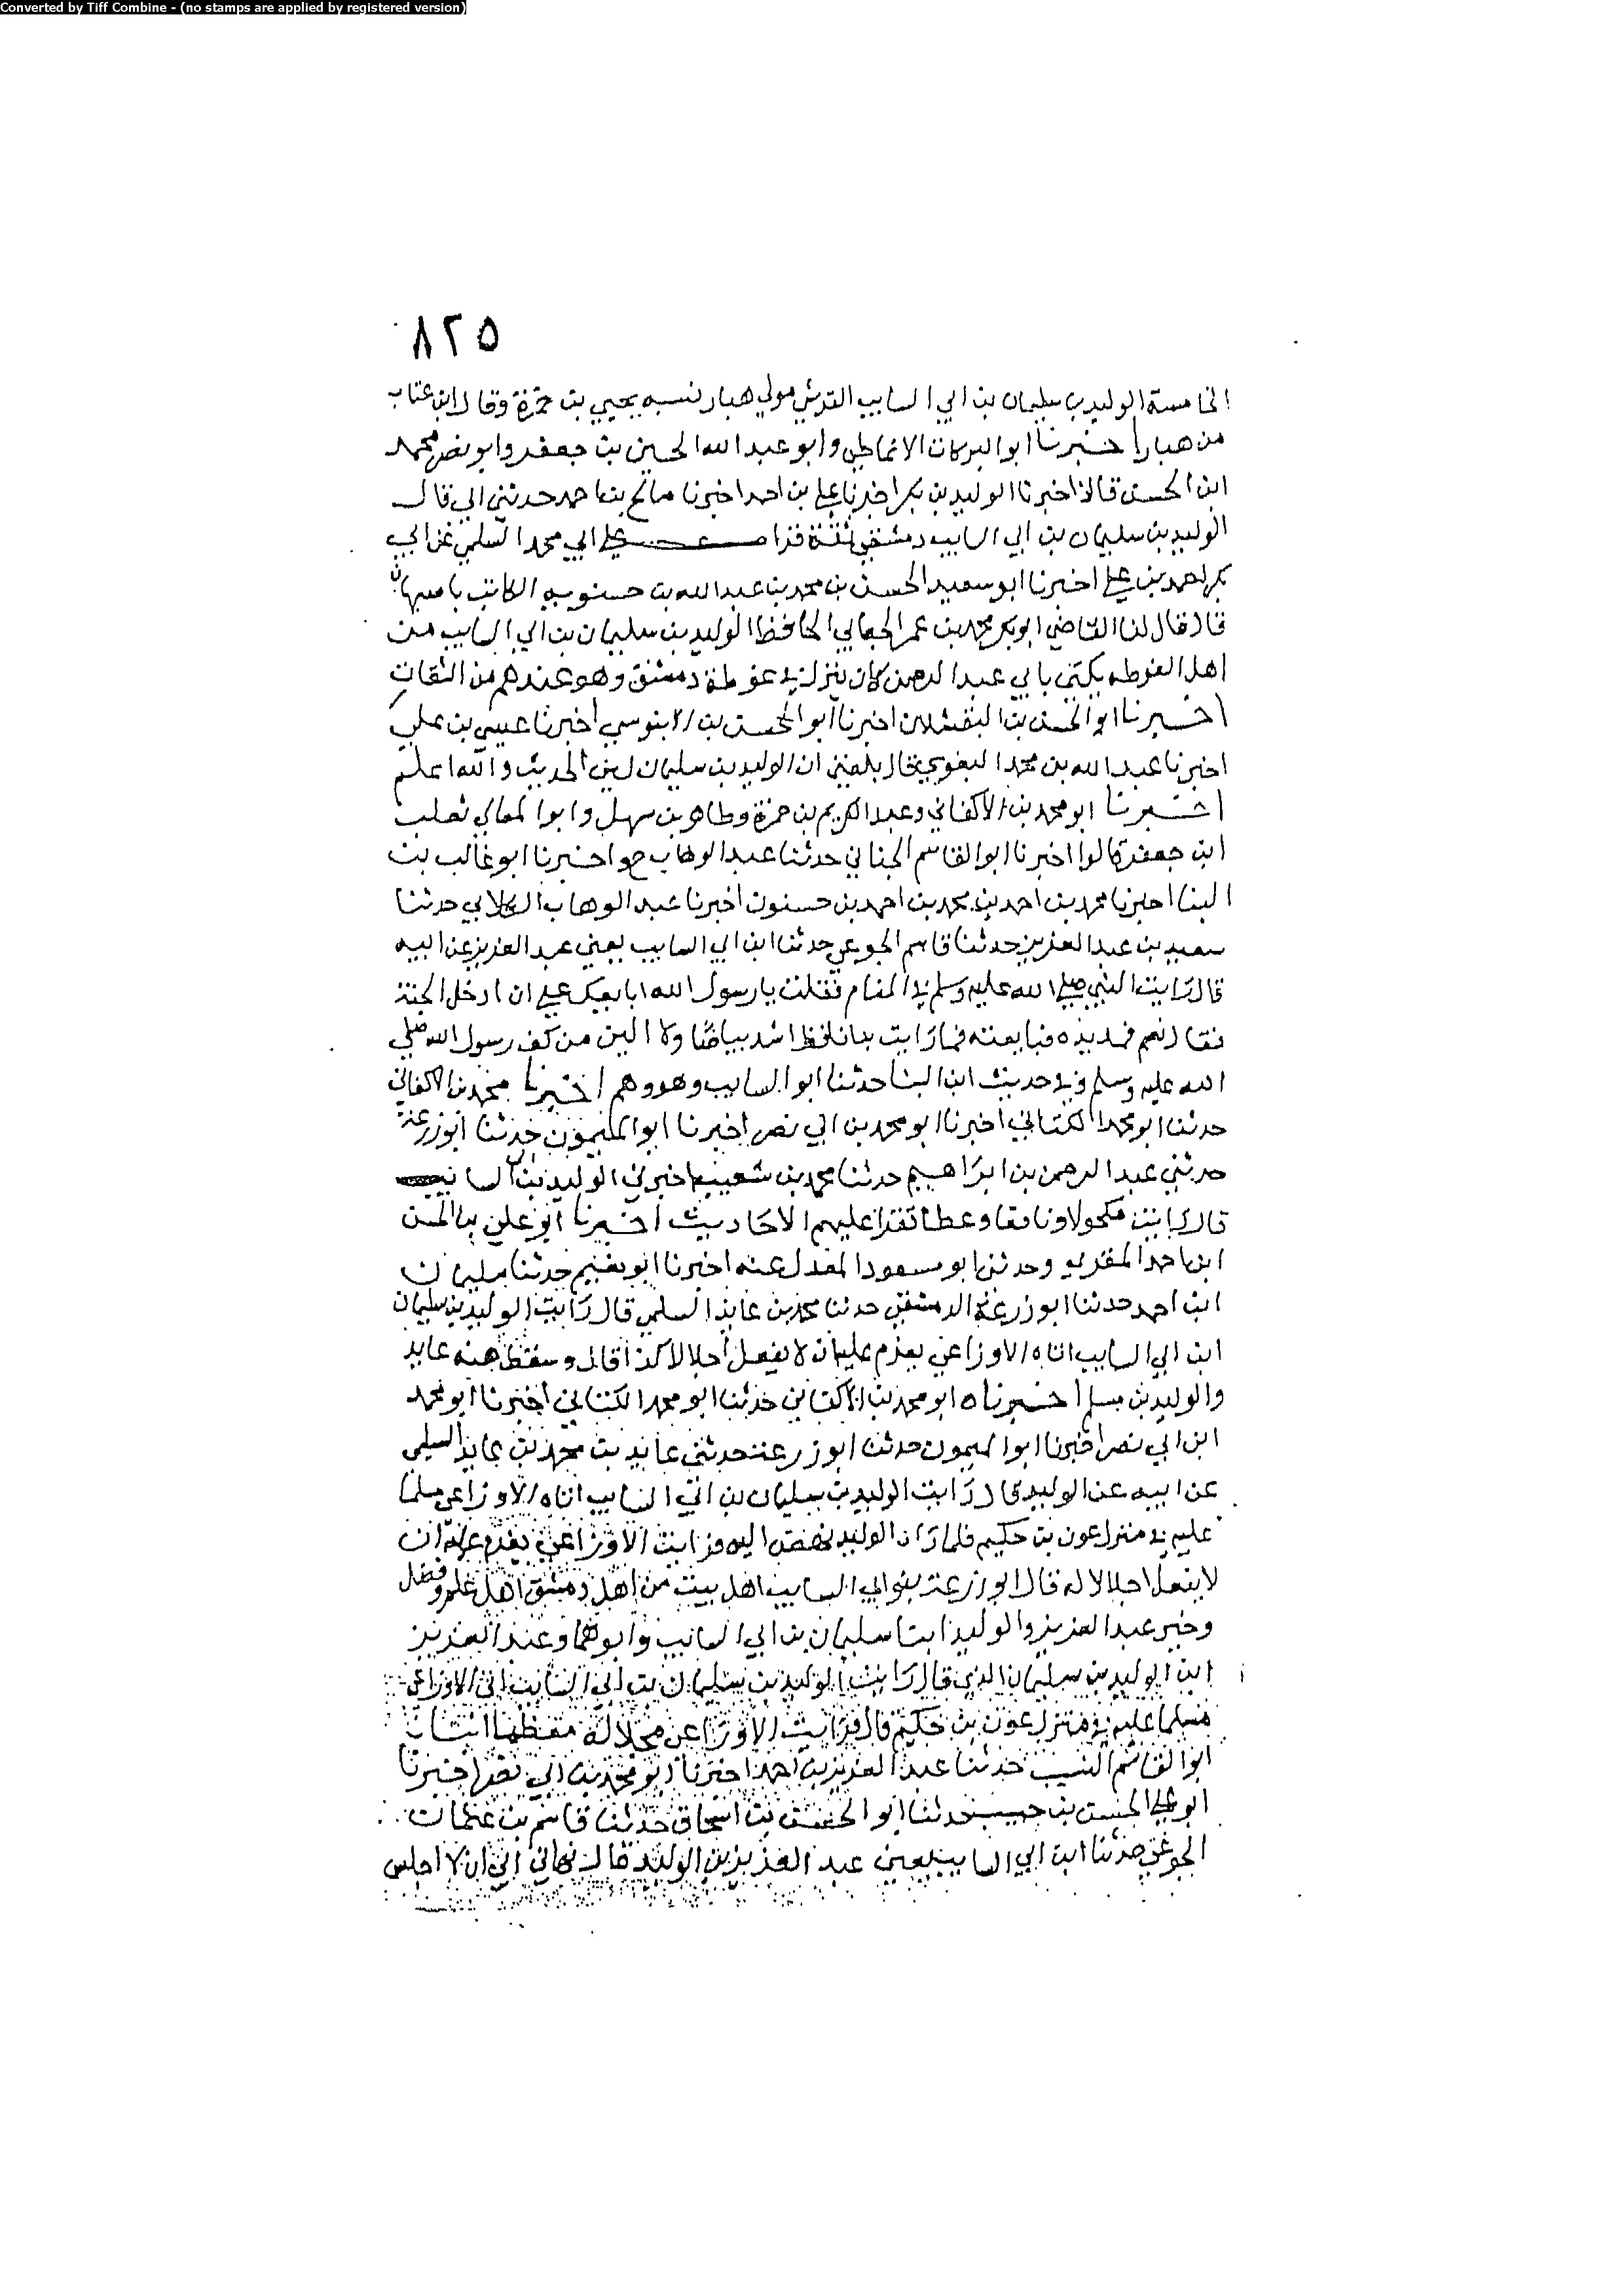 Converted by Tiff Combine - (no stamps are applied by registered version)
٨٢٥
الخامسة الوليد بن سليمان بن ابي السايب القرشي مولي هبار نسبه يحيي بن حمزة وقال ابن عتاب
من هبار اخبرنا ابو البركات الانماطي وابو عبد الله الحسين بن جعفر وابو نصر محمد
ابن الحسن قالا اخبرنا الوليد بن بكر اخبرنا علي بن احمد اخبرنا صالح بن احمد حدثني ابي قال
الوليد بن سليمان بن ابي السايب دمشقي ثقة قرا علي ابي محمد السلمي عن ابي
بكر احمد بن علي اخبرنا ابو سعيد الحسن بن محمد بن عبد الله بن حسنويه الكاتب باصبهان
قال قال لنا القاضي ابو بكر محمد بن عمر الجعابي الحافظ الوليد بن سليمان بن ابي السايب من
اهل الغوطه يكنى بابي عبد الرحمن كان ينزل في غوطة دمشق وهو عندهم من الثقات
اخبرنا ابو الحسن بن البقشلان اخبرنا ابو الحسن بن الابنوسي اخبرنا عيسي بن علي
اخبرنا عبد الله بن محمد البغوي قال بلغني ان الوليد بن سليمان لين الحديث والله اعلم
اخبرنا ابو محمد بن الاكفاني وعبد الكريم بن حمزة وطاهر بن سهل وابو المعالي ثعلب
ابن جعفر قالوا اخبرنا ابو القاسم الحنائي حدثنا عبد الوهاب ح واخبرنا ابو غالب بن
البنا اخبرنا محمد بن احمد بن محمد بن احمد بن حسنون اخبرنا عبد الوهاب الكلابي حدثنا
سعيد بن عبد العزيز حدثنا قاسم الجوعي حدثنا ابن ابي السايب يعني عبد العزيز عن ابيه
قال رايت النبي صلي الله عليه وسلم في المنام فقلت يا رسول الله ابايعك علي ان ادخل الجنة
فقال نعم فمد يده فبايعته فما رايت بنانا قط اشد بياضا ولا الين من كف رسول الله صلي
الله عليه وسلم وفي حديث ابن البنا حدثنا ابو السايب وهو وهم اخبرنا محمد بن الاكفاني
حدثنا ابو محمد الكتاني اخبرنا ابو محمد بن ابي نصر اخبرنا ابو الميمون حدثنا ابو زرعة
حدثني عبد الرحمن بن ابراهيم حدثنا محمد بن شعيب اخبرني الوليد بن ابي السايب
قال رايت مكحولا ونافعا وعطا تقرا عليهم الاحاديث اخبرنا ابو علي بن الحسن
ابن احمد المقري وحدثني ابو مسعود المعدل عنه اخبرنا ابو نعيم حدثنا سليمان
ابن احمد حدثنا ابو زرعة الدمشقي حدثنا محمد بن عايذ السلمي قال رايت الوليد بن سليمان
ابن ابي السايب اتاه الاوزاعي يعزم عليه ان لا يفعل اجلالا كذا قال وسقط منه عايذ
والوليد بن مسلم اخبرناه ابو محمد بن الاكفاني حدثنا ابو محمد الكتاني اخبرنا ابو محمد
ابن ابي نصر اخبرنا ابو الميمون حدثنا ابو زرعة حدثني عايذ بن محمد بن عايذ السلمي
عن ابيه عن الوليد قال رايت الوليد بن سليمان بن ابي السايب اتاه الاوزاعي مسلما
عليه في منزل عون بن حكيم فلما راه الوليد نهض اليه فرايت الاوزاعي يعزم عليه ان
لا يفعل اجلالا له قال ابو زرعة بنو ابي السايب اهل بيت من اهل دمشق اهل علم وفضل
وخير عبد العزيز والوليد ابنا سليمان بن ابي السايب وابوهما وعبد العزيز
ابن الوليد بن سليمان الذي قال رايت الوليد بن سليمان بن ابي السايب اتي الاوزاعي
مسلما عليه في منزل عون بن حكيم قال فرايت الاوزاعي مجلا له معظما انبانا
ابو القاسم النسيب حدثنا عبد العزيز بن احمد اخبرنا ابو محمد بن ابي نصر اخبرنا
ابو علي الحسن بن حبيب حدثنا ابو الحسن بن اسحاق حدثنا قاسم بن عثمان
الجوعي حدثنا ابن ابي السايب يعني عبد العزيز بن الوليد قال نهاني ابي ان لا اجلس